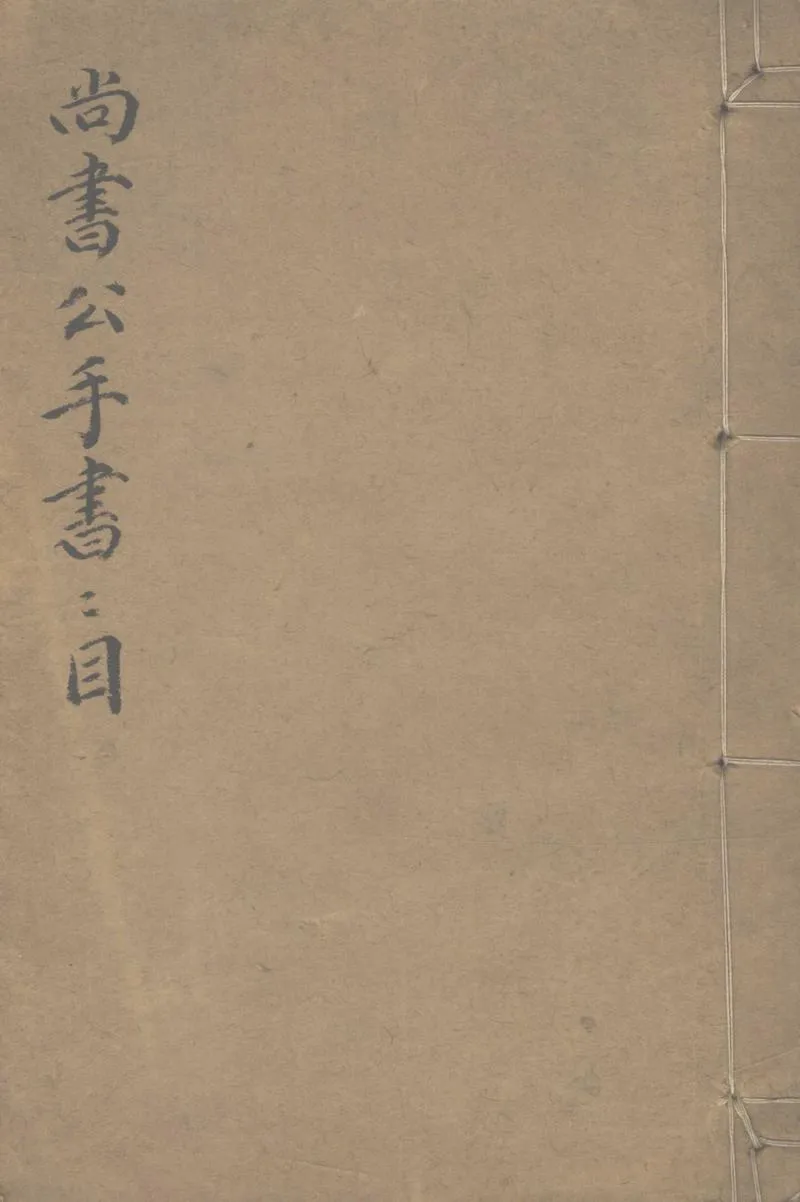 尚書公手書〻目